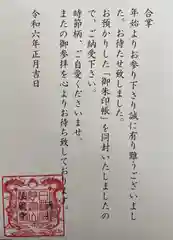 合掌
年始よりお参り下さり誠に有り難うございまし
た。お待たせ致しました。
お預かりした「御朱印帳」を同封いたしましたの
で、ご納受下さい。
時節柄、ご自愛くださいませ。
またの御参拝を心よりお待ち致しております。
令和六年正月吉日